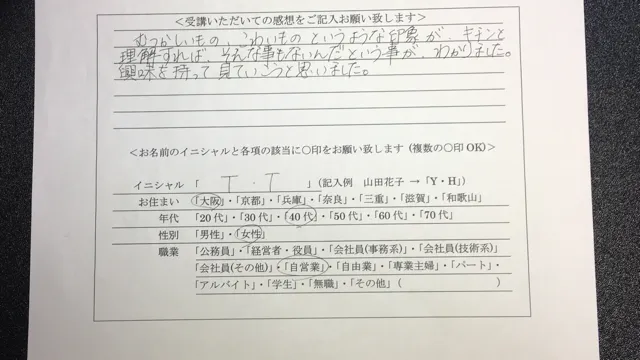 <受講いただいての感想をご記入お願い致します>
むつかしいもの、こわいもの というような印象が、キチンと
理解すれば、そんな事もないんだという事が、わかりました。
興味を持って見ていこうと思いました。
<お名前のイニシャルと各項の該当に〇印をお願い致します (複数の〇印OK)>
イニシャル 「 T ・ T 」 (記入例 山田花子 →「Y・H」)
お住まい 「大阪」・「京都」・「兵庫」・「奈良」・「三重」・「滋賀」・「和歌山」
年代 「20代」・「30代」・「40代」・「50代」・「60代」・「70代」
性別 「男性」・「女性」
職業 「公務員」・「経営者・役員」・「会社員(事務系)」・「会社員(技術系)」
「会社員(その他)」・「自営業」・「自由業」・「専業主婦」・「パート」・
「アルバイト」・「学生」・「無職」・「その他」( )